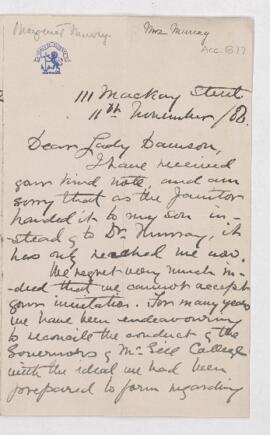 Margaret Murray
Mrs Murray
Acc. 877
111 Mackay Street
11th November / 86.
Dear Lady Dawson,
I have received
your kind note and am
sorry that as the Janitor
handed it to my son in-
stead of to Dr. Murray, it
has only reached me now.
We regret very much in-
deed that we cannot accept
your invitation. For many years
we have been endeavouring
to reconcile the conduct of the
Governors of McGill College
with the ideal we had been
prepared to form regarding